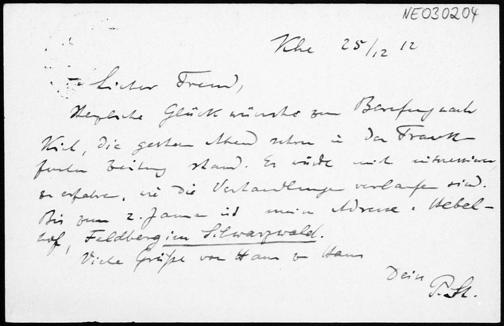 NE030204
Khe 25/12 12
Lieber Freund,
Herzliche Glückwünsche zur Berufung nach
Kiel, die gestern Abend schon in der Frank
furter Zeitung stand. Es würde mich interessieren
zu erfahren, wie die Verhandlungen verlaufen sind.
Bis zum 2. Januar ist meine Adresse: Hebel-
hof, Feldberg im Schwarzwald.
Viele Grüße von Haus zu Haus
Dein
P. St.